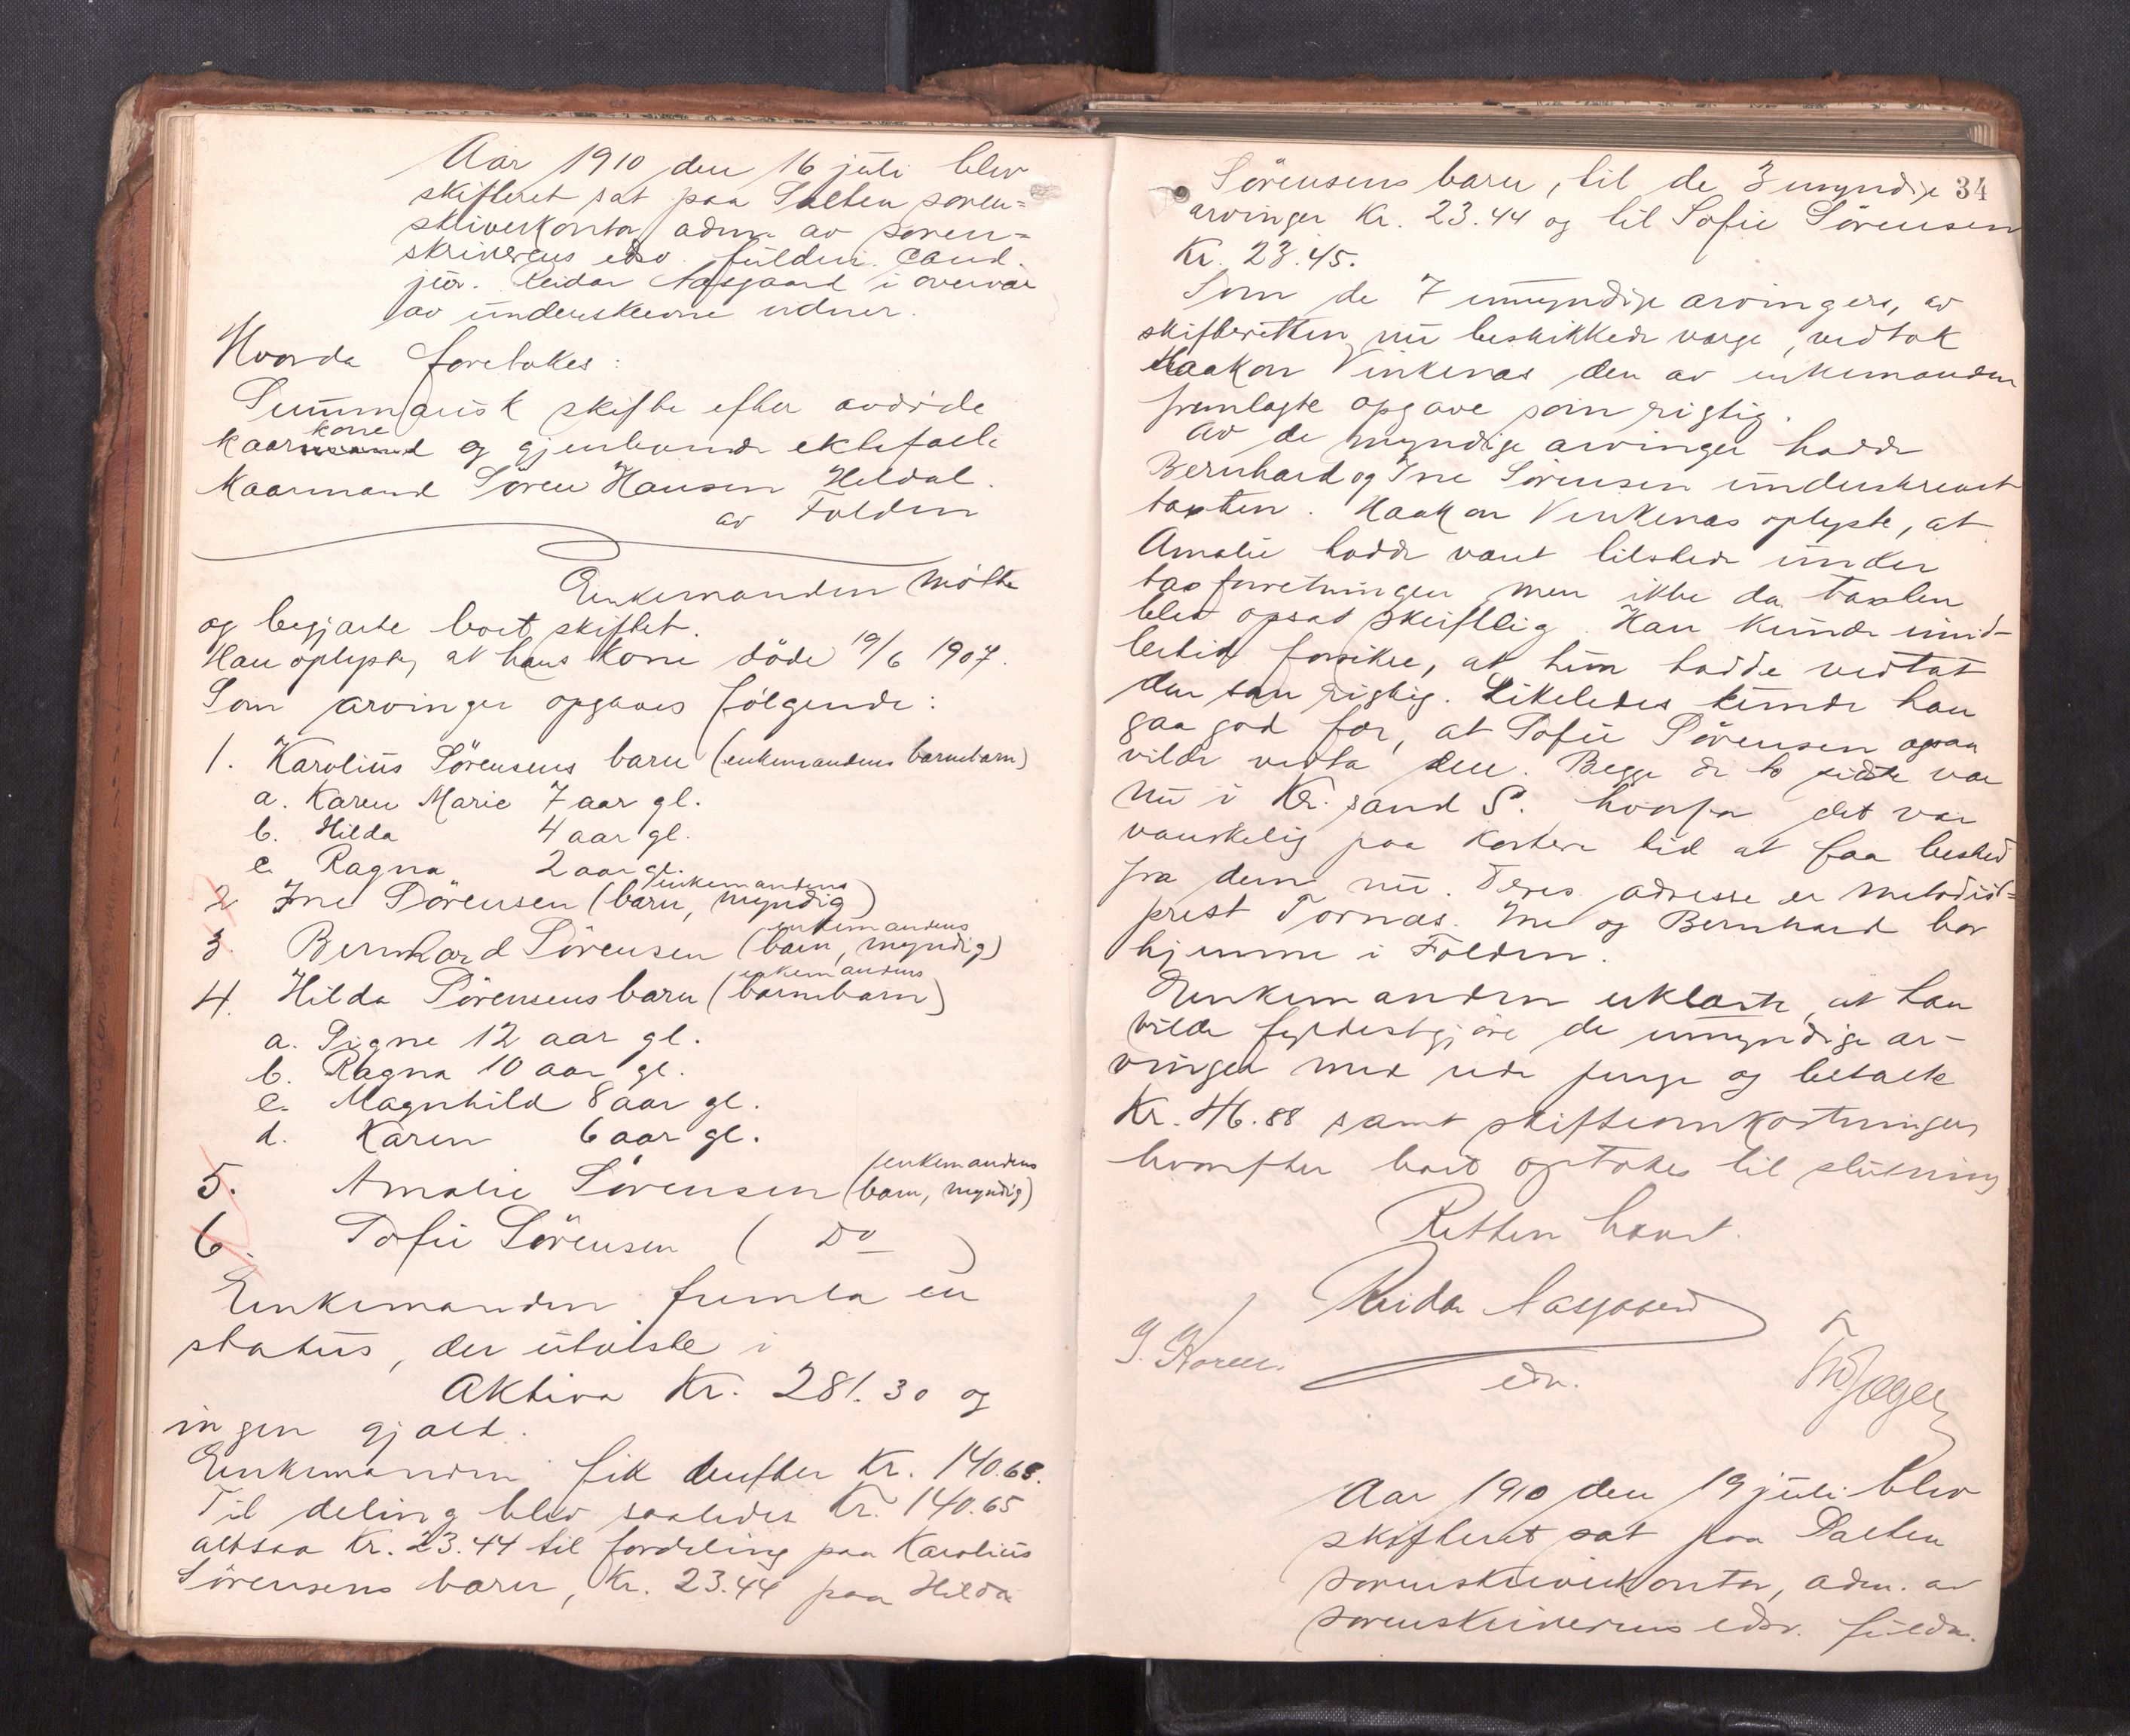 Aar 1910 den 16 juli blev
skifteret sat paa Salten soren=
skriverkontor adm. av soren=
skriverens edsv. fuldm. cand.
jur. Reidar Aasgaard i overvær
av underskrevne vidner.
Hvorda foretokes:
Summarisk skifte efter avdöde
kone
kaarmand og gjenlevende ektefælle
Kaarmand Sören Hansen Heldal.
av Folden
Enkemanden mötte
og begjærte boet skiftet.
Han oplyste, at hans kone döde 19/6 1907.
Som arvinger opgaves fölgende:
1. Karolius Sörensens barn (enkemandens barnebarn)
a. Karen Marie 7 aar gl.
b. Hilda 4 aar gl.
c. Ragna 2 aar gl.
enkemandens
2 Ine Sörensen (barn, myndig)
enkemandens
3. Bernhard Sörensen (barn, myndig)
enkemandens
4. Hilda Sörensens barn (barnebarn)
a. Signe 12 aar gl.
b. Ragna 10 aar gl.
c. Magnhild 8 aar gl.
d. Karen 6 aar gl.
enkemandens
5. Amalie Sörensen (barn, myndig)
6. Sofie Sörensen ( Do )
Enkemanden fremla en
status, der utviste i
Aktiva Kr. 281.30 og
ingen gjæld.
Enkemanden fik derefter Kr. 140.65.
Til deling blev saaledes Kr. 140.65
altsaa Kr. 23.44 til fordeling paa Karolius
Sörensens barn, Kr. 23.44 paa Hilda
34
Sörensens barn, til de 3 myndige
arvinger Kr. 23.44 og til Sofie Sörensen
Kr. 23.45.
Som de 7 umyndige arvingers, av
skifteretten nu beskikkede værge, vedtok
Haakon Vinkenes den av enkemanden
fremlagte opgave som rigtig.
Av de myndige arvinger hadde
Bernhard og Ine Sörensen underskrevet
taxten. Haakon Vinkenes oplyste, at
Amalie hadde været tilstede under
taxforretningen men ikke da taxten
blev opsat skriftlig. Han kunde imid-
lertid forsikre, at hun hadde vedtat
den som rigtig. Likeledes kunde han
gaa god for, at Sofie Sörensen ogsaa
vilde vedta den. Begge de to sidste var
nu i Kr.sand S. hvorfor det var
vanskelig paa kortere tid at faa besked
fra dem nu. Deres adresse er metodist=
prest Tornæs. Ine og Bernhard bor
hjemme i Folden.
Enkemanden erklærte, at han
vilde fyldestgjöre de umyndige ar-
vinger med rede penge og betalte
Kr. 46.88 samt skifteomkostninger
hvorefter boet optokes til slutning
Retten hævet.
Reidar Aasgaard
edsv.
Aar 1910 den 19 juli blev
skifteret sat paa Salten
sorenskriverkontor, adm. av
sorenskriverens edsv. fuldm.